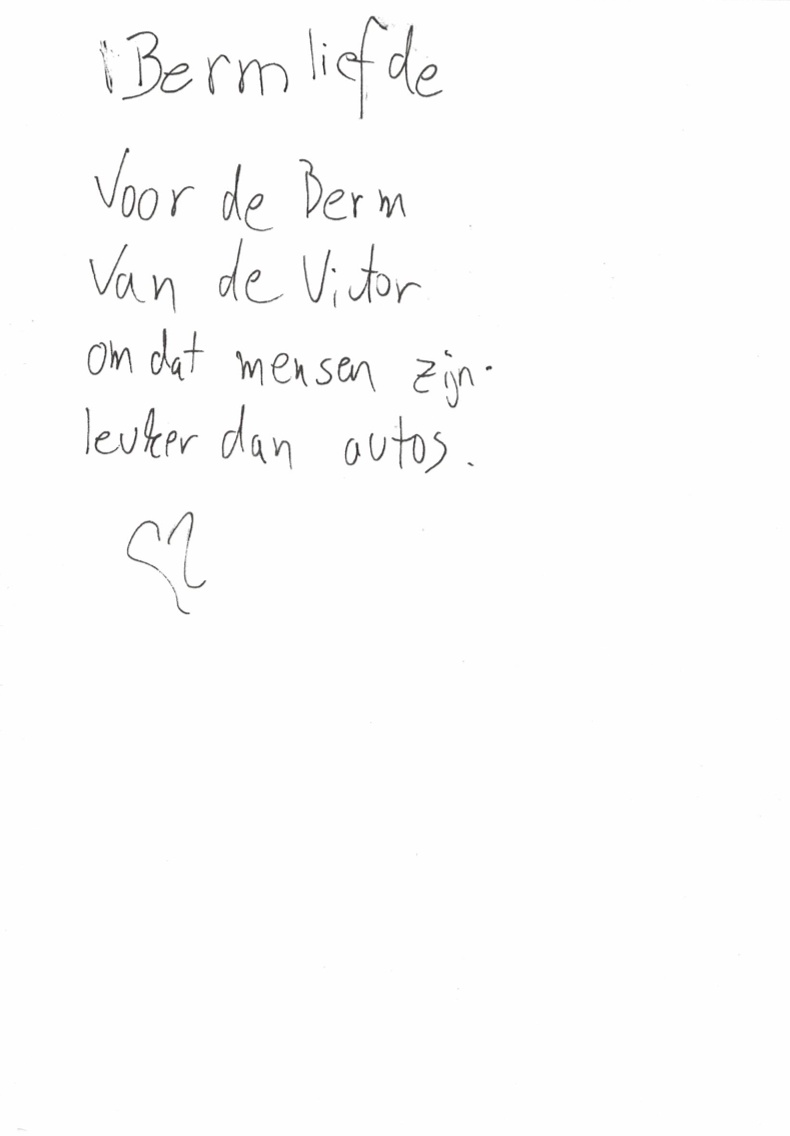 Bermliefde
Voor de Berm
Van de Victor
omdat mensen zijn
leuker dan autos.